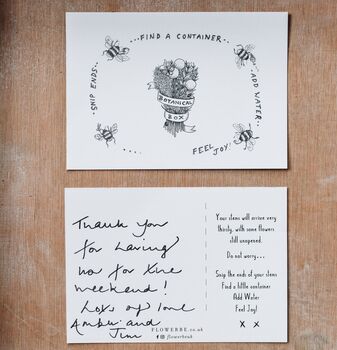 ...FIND A CONTAINER...
SNIP ENDS...
ADD WATER...
BOTANICAL
BOX
FEEL JOY!
....
Thank you
for having
us for the
weekend!
Lots of love
Amber and
Jim
Your stems will arrive very
thirsty, with some flowers
still unopened.
Do not worry...
Snip the ends of your stems
Find a little container
Add Water
Feel Joy!
X X
FLOWERBE.co.uk
flowerbeuk